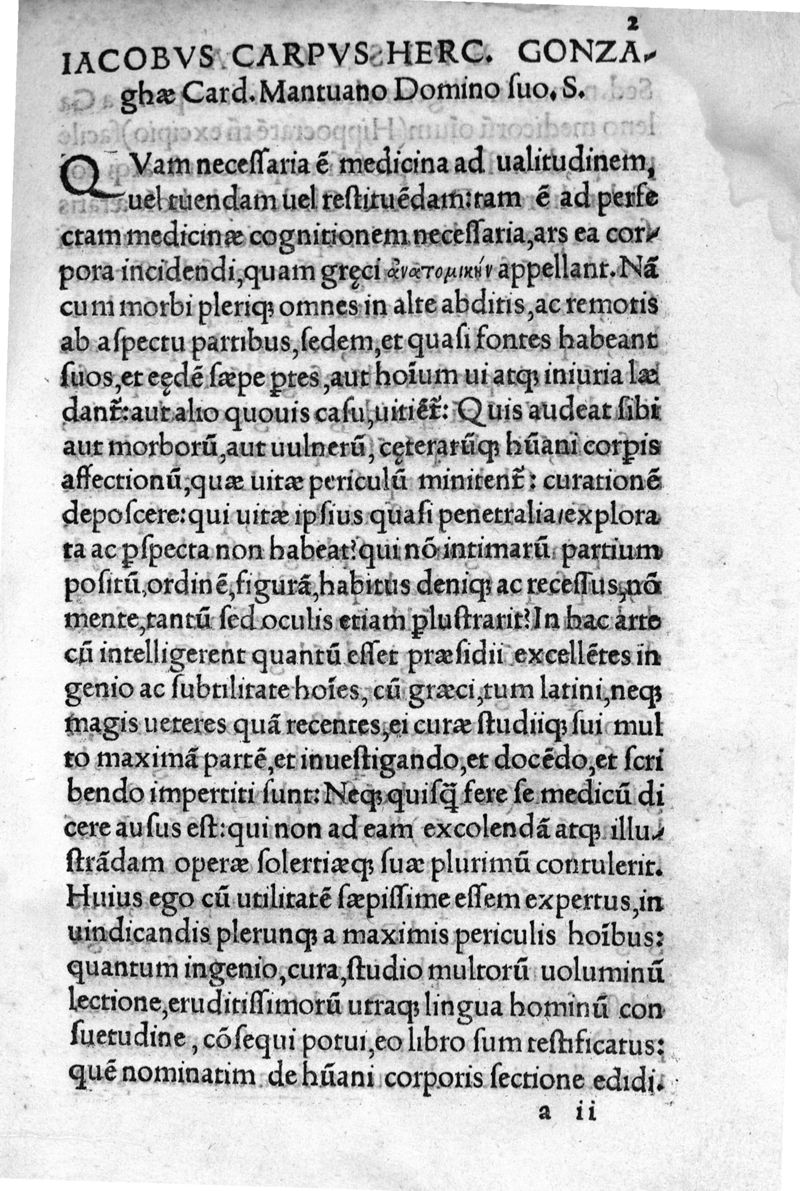 2
IACOBVS CARPVS HERC. GONZA-
ghæ Card. Mantuano Domino ſuo. S.
QVam neceſſaria ē medicina ad ualitudinem,
uel tuendam uel reſtituēdam: tam ē ad perfe
ctam medicinæ cognitionem neceſſaria, ars ea cor-
pora incidendi, quam gręci ἀνατομικήν appellant. Nā
cum morbi pleriqꝫ omnes in alte abditis, ac remotis
ab aſpectu partibus, ſedem, et quaſi fontes habeant
ſuos, et eędē ſæpe ꝑtes, aut hoīum ui atqꝫ iniuria læ
dant̃: aut alio quouis caſu, uitiēt̃: Quis audeat ſibi
aut morborū, aut uulnerū, cęterarūqꝫ hūani corꝑis
affectionū, quæ uitæ periculū minitent̃: curationē
depoſcere: qui uitæ ipſius quaſi penetralia, explora
ta ac ꝑſpecta non habeat? qui nō intimarū partium
poſitū, ordinē, figurā, habitus deniqꝫ ac receſſus, nō
mente, tantū ſed oculis etiam ꝑluſtrarit? In hac arte
cū intelligerent quantū eſſet præſidii excellētes in
genio ac ſubtilitate hoīes, cū græci, tum latini, neqꝫ
magis ueteres quā recentes, ei curæ ſtudiiqꝫ ſui mul
to maximā partē, et inueſtigando, et docēdo, et ſcri
bendo impertiti ſunt: Neqꝫ quiſq̄ fere ſe medicū di
cere auſus eſt: qui non ad eam excolendā atqꝫ illu-
ſtrādam operæ ſolertiæqꝫ ſuæ plurimū contulerit.
Huius ego cū utilitatē ſæpiſſime eſſem expertus, in
uindicandis plerunqꝫ a maximis periculis hoībus:
quantum ingenio, cura, ſtudio multorū uoluminū
lectione, eruditiſſimorū utraqꝫ lingua hominū con
ſuetudine, cōſequi potui, eo libro ſum teſtificatus:
quē nominatim de hūani corporis ſectione edidi.
a ii